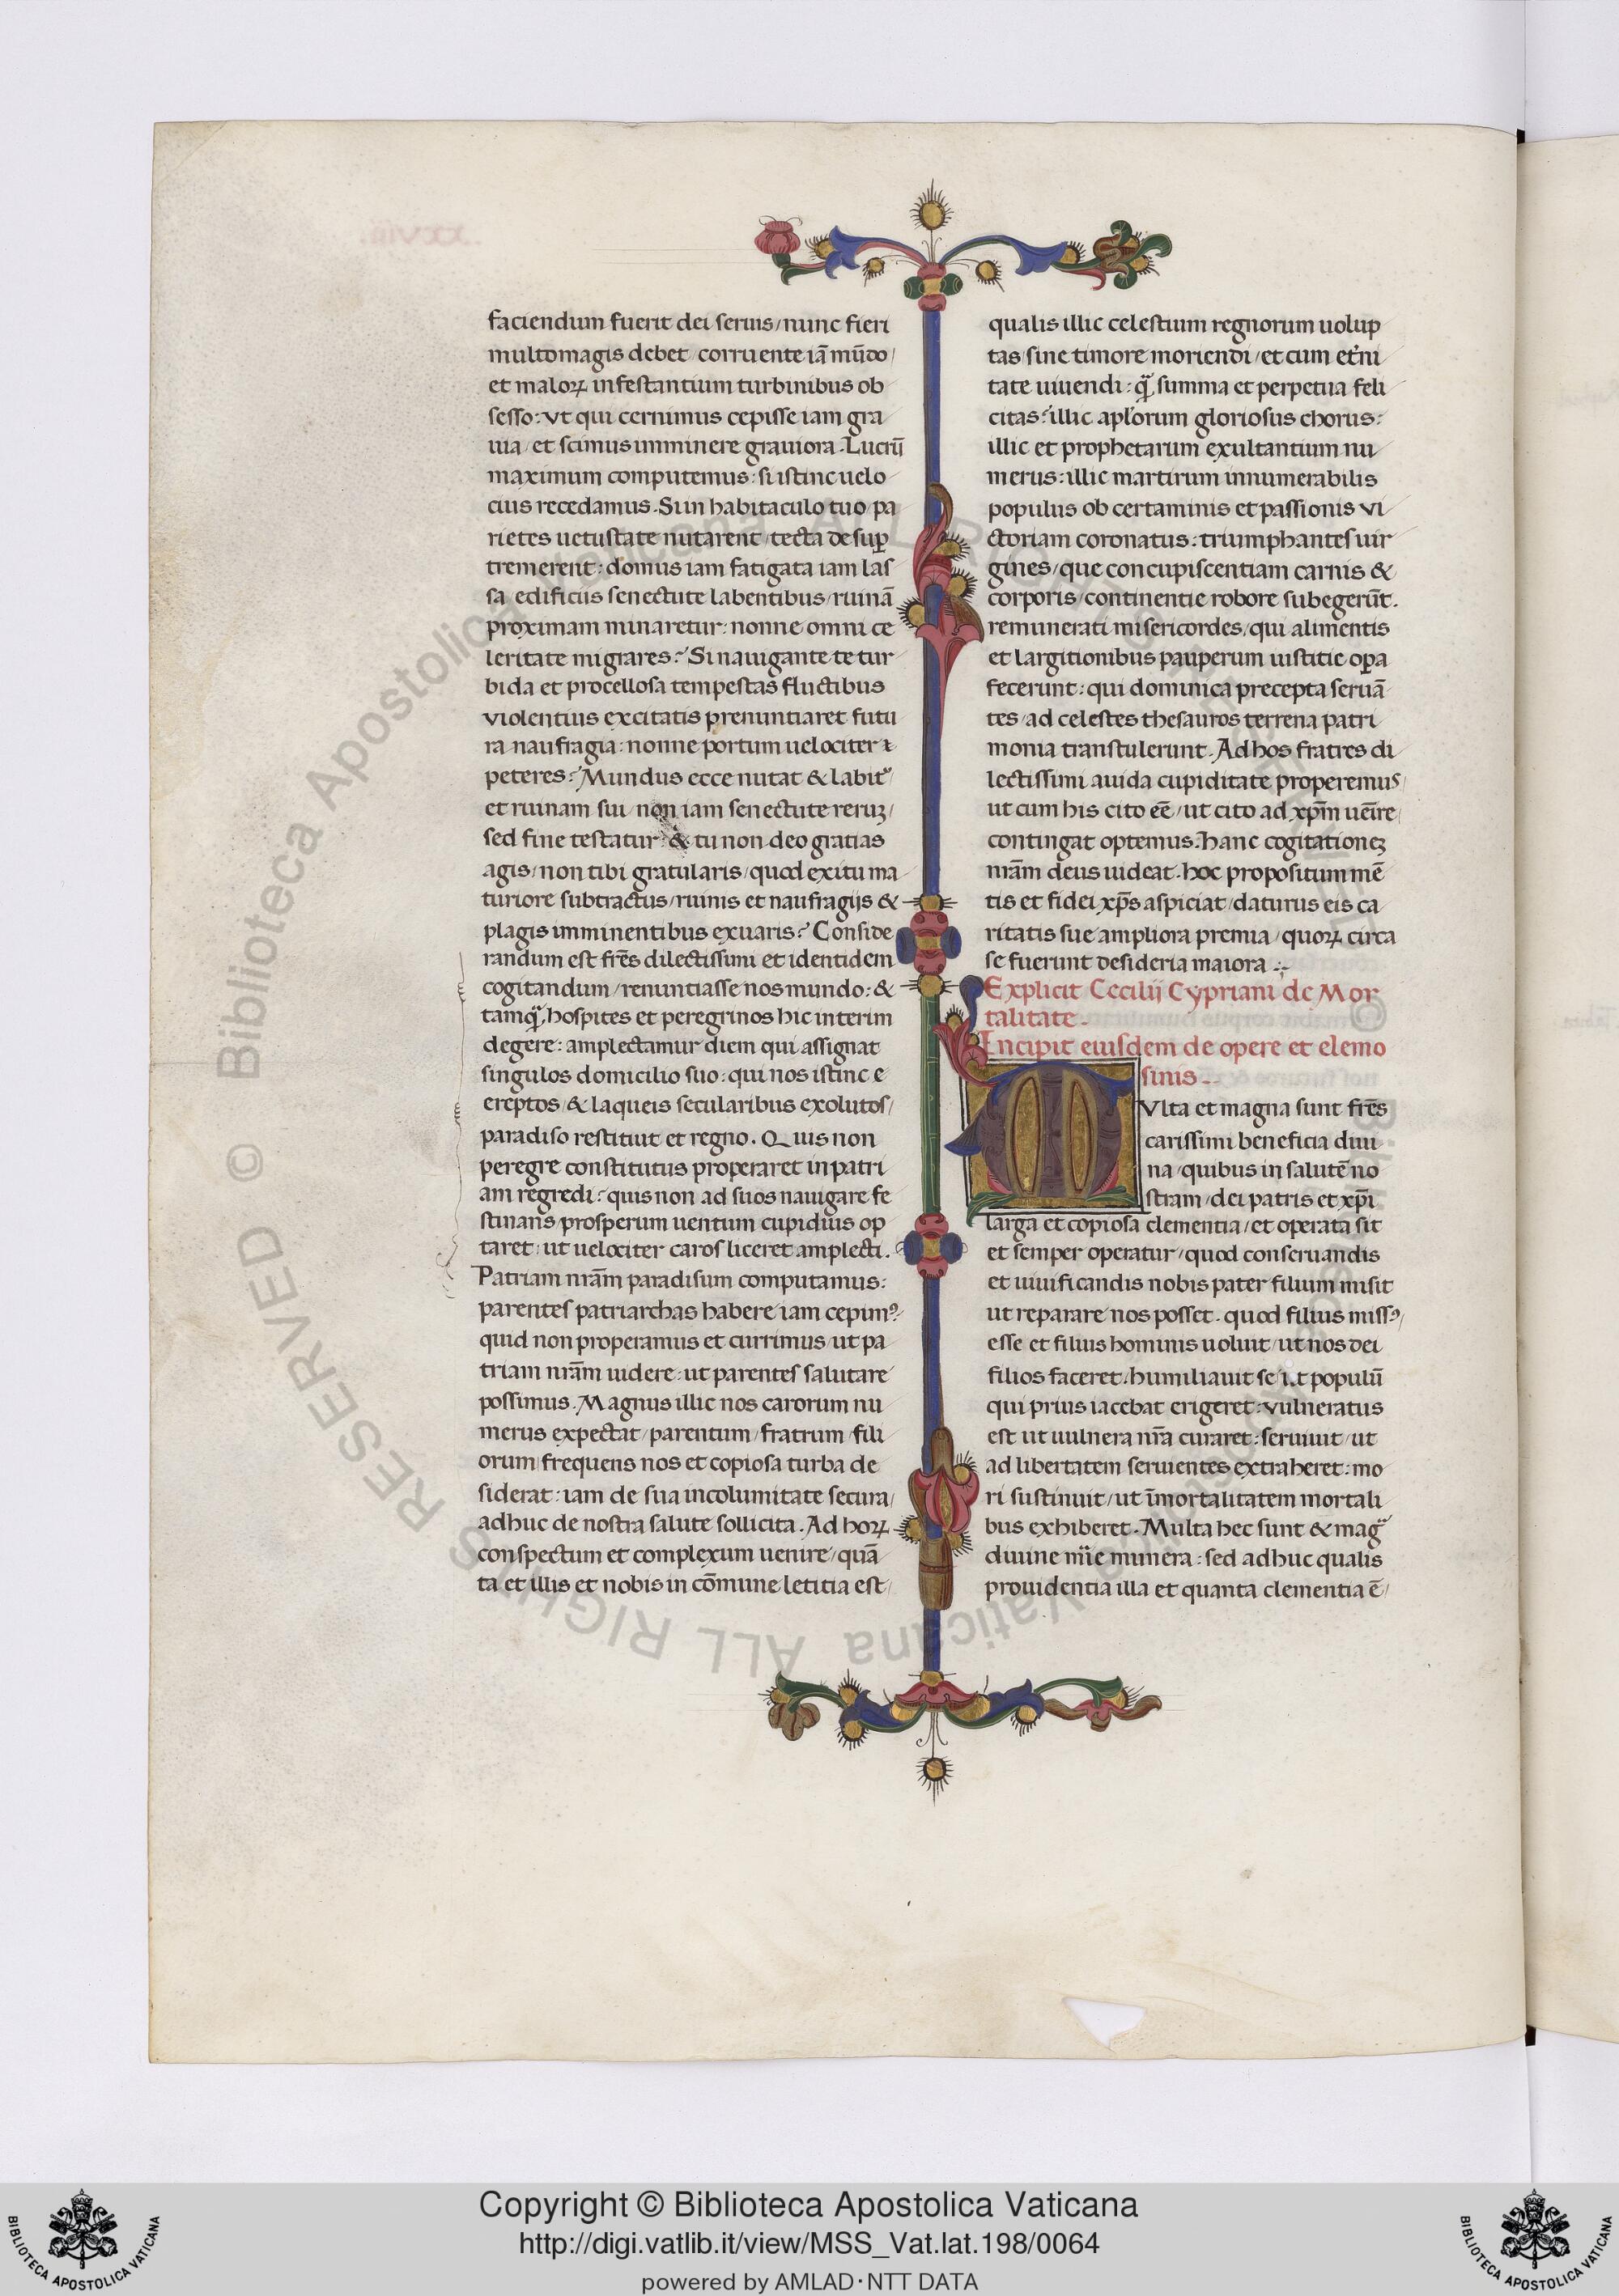 faciendum fuerit dei seruis/nunc fieri
multomagis debet/corruente iã mũdo/
et maloꝝ infestantium turbinibus ob
sesso:vt qui cernimus cepisse iam gra
uia/et scimus imminere grauiora.Lucrũ
maximum computemus:si istinc uelo
cius recedamus.Si in habitaculo tuo/pa
rietes uetustate nutarent/tecta desuꝑ
tremerent:domus iam fatigata iam las
sa edificiis senectute labentibus/ruinã
proximam minaretur:nonne omni ce
leritate migrares? Si nauigante te tur
bida et procellosa tempestas fluctibus
violentius excitatis prenuntiaret futu
ra naufragia:nonne portum uelociter
peteres? Mundus ecce nutat & labit᷑
et ruinam sui/non iam senectute reruꝫ/
sed fine testatur:& tu non deo gratias
agis/non tibi gratularis/quod exitu ma
turiore subtractus/ruinis et naufragijs &
plagis imminentibus exuaris? Conside
randum est fr̃es dilectissimi et identidem
cogitandum/renuntiasse nos mundo:&
tamq̃/hospites et peregrinos hic interim
degere:amplectamur diem qui assignat
singulos domicilio suo:qui nos istinc e
ereptos/& laqueis secularibus exolutos/
paradiso restituit et regno. Quis non
peregre constitutus properaret in patri
am regredi? quis non ad suos nauigare fe
stinans/prosperum uentum cupidius op
taret:ut uelociter caros liceret amplecti.
Patriam nr̃am paradisum computamus:
parentes patriarchas habere iam cepimꝰ
quid non properamus et currimus/ut pa
triam nr̃am uidere:ut parentes salutare
possimus.Magnus illic nos carorum nu
merus expectat/parentum/fratrum/fili
orum/frequens nos et copiosa turba de
siderat:iam de sua incolumitate secura/
adhuc de nostra salute sollicita.Ad hoꝝ
conspectum et complexum uenire/quã
ta et illis et nobis in cõmune letitia est/
qualis illic celestium regnorum uolup
tas/sine timore moriendi/et cum et̃ni
tate uiuendi:q̃ summa et perpetua feli
citas? illic apl̃orum gloriosus chorus:
illic et prophetarum exultantium nu
merus:illic martirum innumerabilis
populus ob certaminis et passionis vi
ctoriam coronatus:triumphantes uir
gines/que concupiscentiam carnis &
corporis/continentie robore subegerũt.
remunerati misericordes/qui alimentis
et largitionibus pauperum iustitie oꝑa
fecerunt:qui dominica precepta seruã
tes/ad celestes thesauros terrena patri
monia transtulerunt.Ad hos fratres di
lectissimi auida cupiditate properemus/
ut cum his cito eẽ/ut cito ad xp̃m uẽire
contingat optemus.hanc cogitationeꝫ
nr̃am deus uideat.hoc propositum mẽ
tis et fidei xp̃s aspiciat/daturus eis ca
ritatis sue ampliora premia/quoꝝ circa
se fuerunt desideria maiora.
Explicit Cecilij Cypriani de Mor
talitate.
Incipit eiusdem de opere et elemo
sinis.
MVlta et magna sunt fr̃es
carissimi beneficia diui
na/quibus in salutẽ no
stram/dei patris et xp̃i
larga et copiosa clementia/et operata sit
et semper operatur/quod conseruandis
et uiuificandis nobis pater filium misit
ut reparare nos posset.quod filius missꝰ/
esse et filius hominis uoluit/ut nos dei
filios faceret.humiliauit se ut populũ
qui prius iacebat erigeret:vulneratus
est ut uulnera nr̃a curaret:seruiuit/ut
ad libertatem seruientes extraheret:mo
ri sustinuit/ut ĩmortalitatem mortali
bus exhiberet.Multa hec sunt & magᷓ
diuine mĩe munera:sed adhuc qualis
prouidentia illa et quanta clementia ẽ/
© Biblioteca Apostolica Vaticana ALL RIGHTS RESERVED © Biblioteca Apostolica Vaticana ALL RIGHTS RESERVED
Copyright © Biblioteca Apostolica Vaticana
http://digi.vatlib.it/view/MSS_Vat.lat.198/0064
powered by AMLAD·NTT DATA
BIBLIOTECA APOSTOLICA VATICANA
BIBLIOTECA APOSTOLICA VATICANA